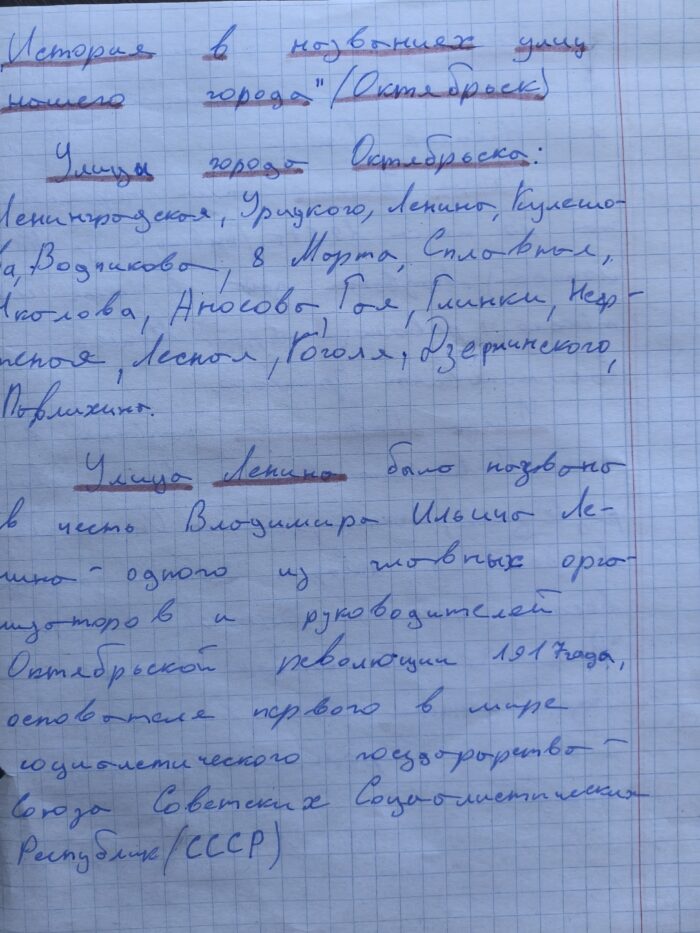 История в названиях улиц
нашего города" (Октябрьск)
Улицы города Октябрьска:
Ленинградская, Урицкого, Ленина, Кулешо-
ва, Водникова, 8 Марта, Сплавная,
Аносова, Гая, Глинки, Неф-
Лесная, Гоголя, Дзержинского,
Павлихина.
Улица Ленина была названа
в честь Владимира Ильича Ле-
нина - одного из главных орга-
низаторов и руководителей
Октябрьской революции 1917 года,
основателя первого в мире
социалистического государства -
Союза Советских Социалистических
Республик (СССР)